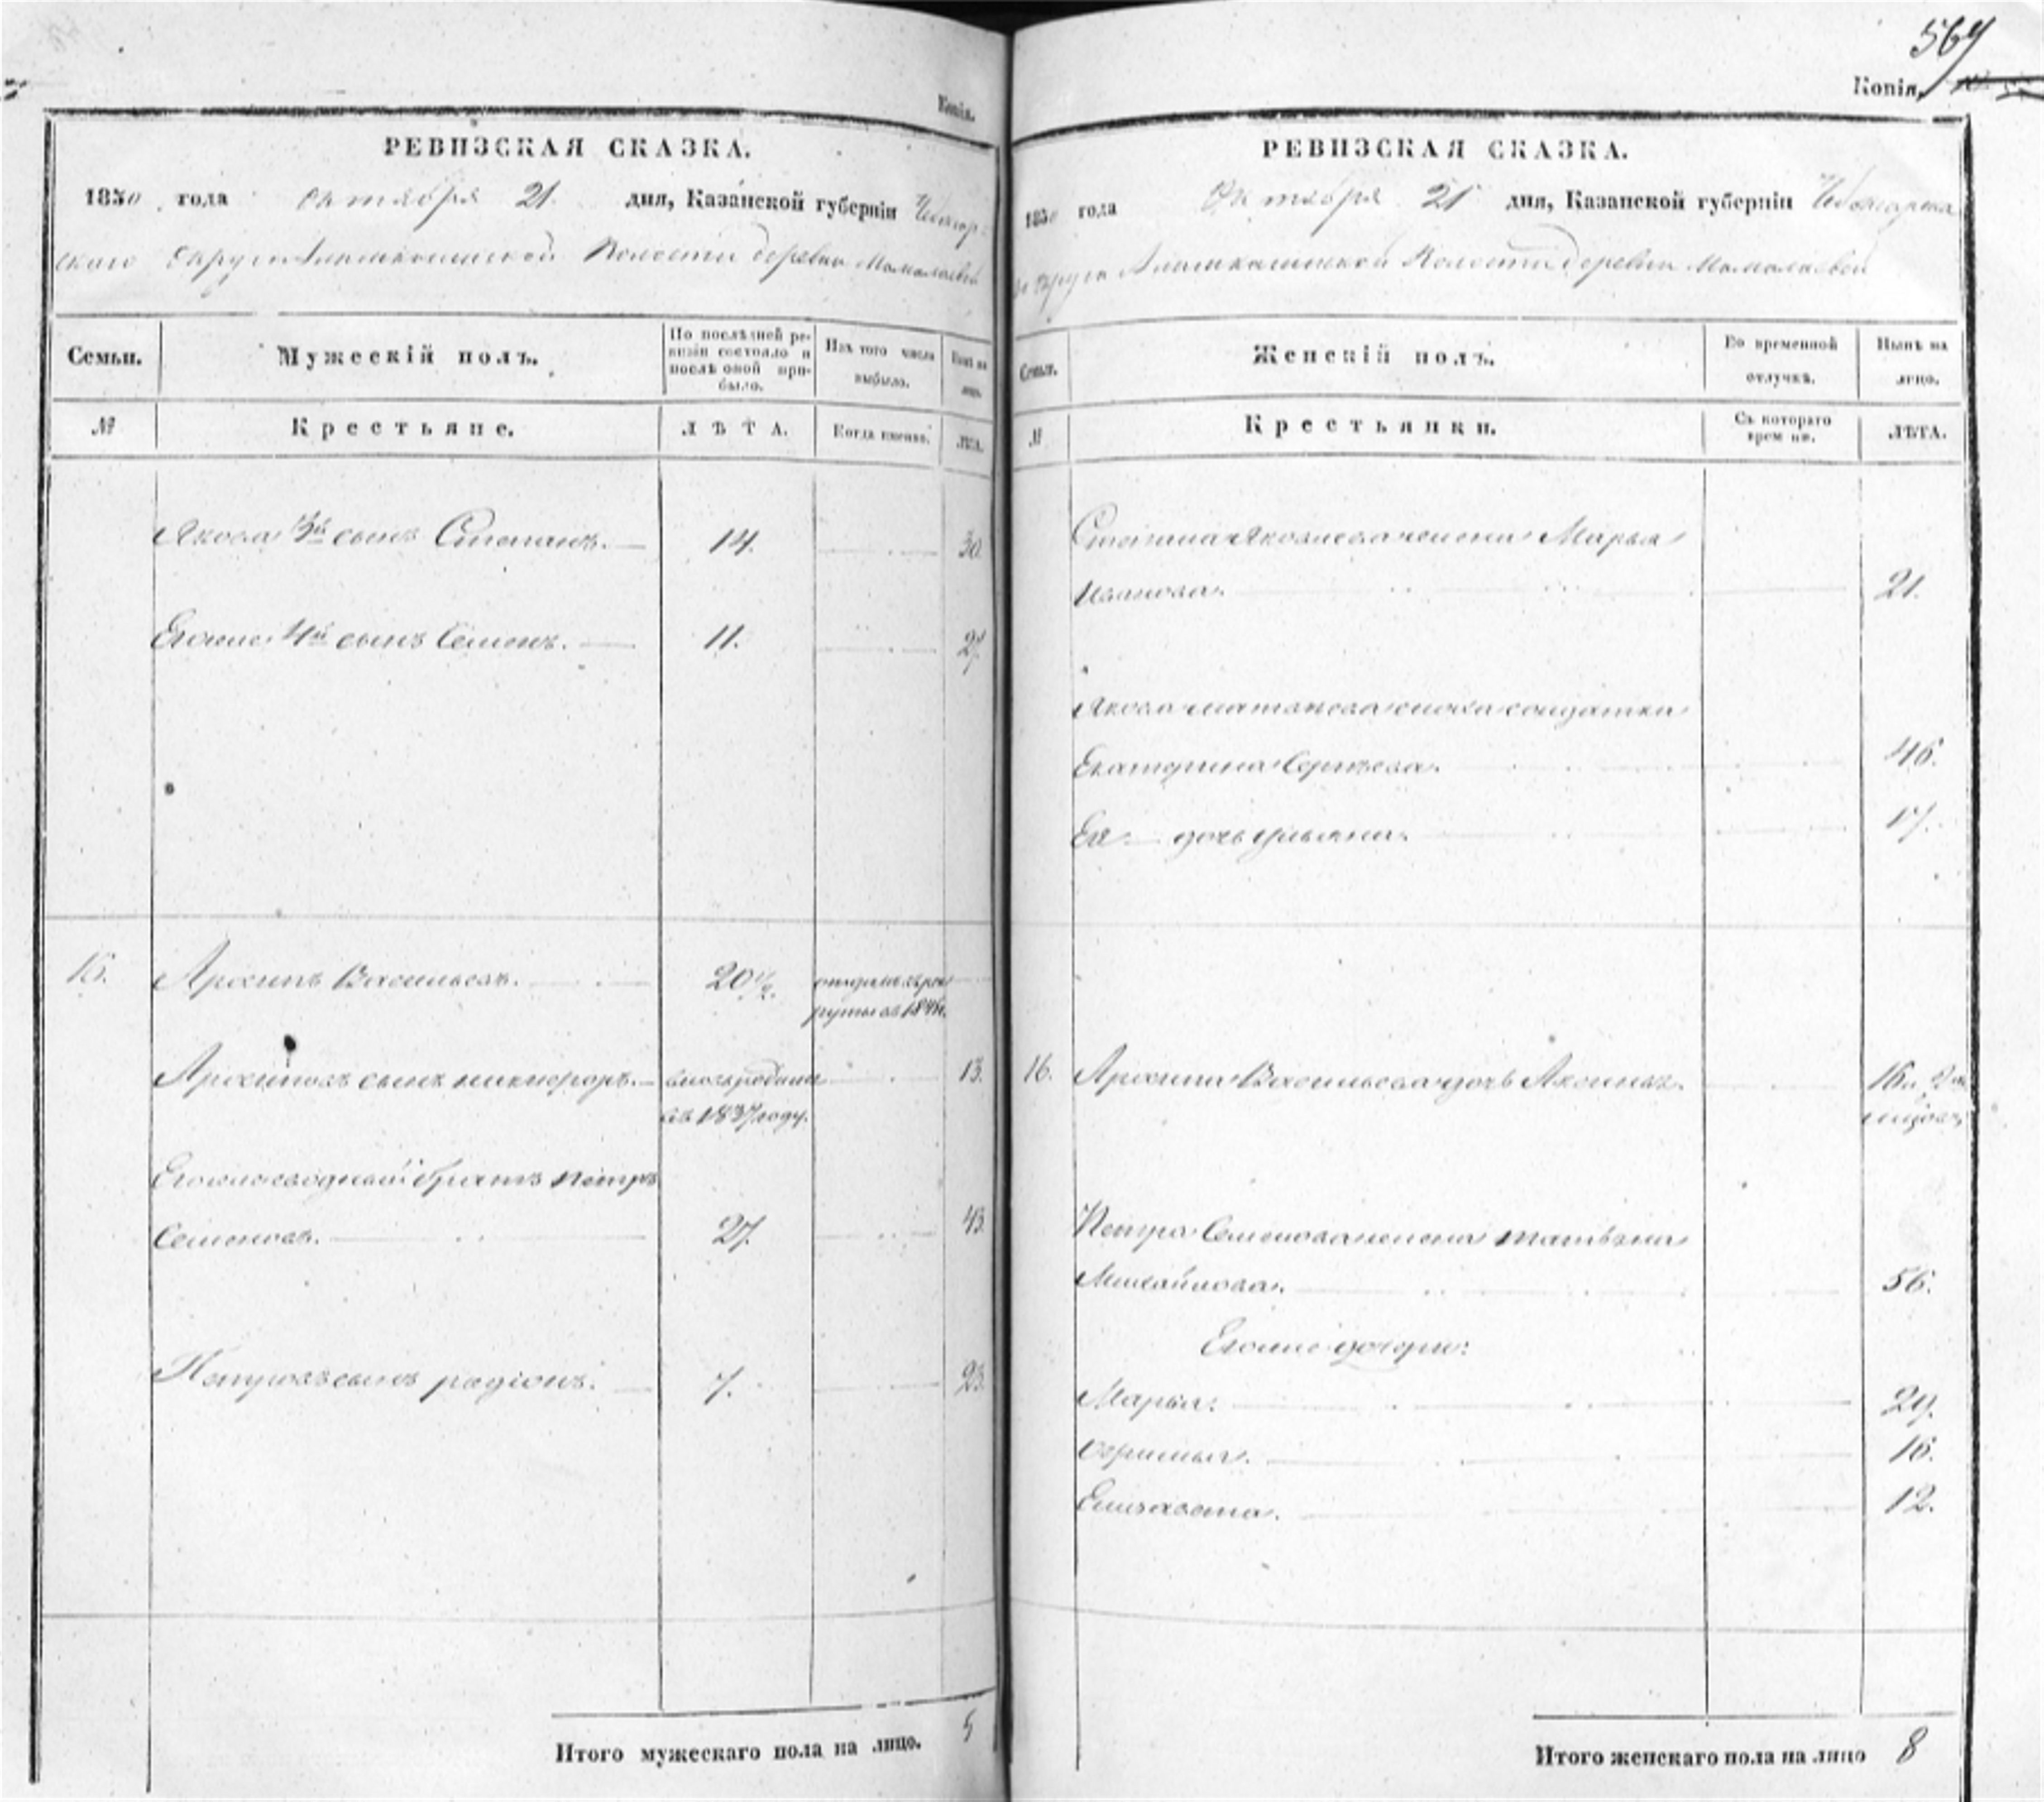 564
Копія.
Копія.
РЕВИЗСКАЯ СКАЗКА.
1850 года октября 21 дня, Казанской губерніи Чебоксар-
скаго округа Алымкасинской Волости деревни Мамалаевой
Семьи.
Мужескій полъ.
По послѣдней ре-
визіи состояло и
послѣ оной при-
было.
Изъ того числа
выбыло.
Нынѣ на
лицо.
№
Крестьяне.
ЛѢТА.
Когда именно.
ЛѢТА.
Якова 3й сынъ Степанъ. 14. 30.
Егоже 4й сынъ Семенъ. 11. 27.
16. Архипъ Васильевъ. 20½. отданъ въ рек
руты въ 184
Архиповъ сынъ никифоръ. вновь родился 13.
въ 1837 году.
Егоже сводный братъ петръ
Семеновъ. 27. 43.
Петровъ сынъ радіонъ. 7. 23.
Итого мужескаго пола на лицо. 5
РЕВИЗСКАЯ СКАЗКА.
1850 года Октября 21 дня, Казанской губерніи Чебоксарска
го округа Алымкасинской Волости деревни Мамалаевой
Семьи.
Женскій полъ.
Во временной
отлучкѣ.
Нынѣ на
лицо.
№
Крестьянки.
Съ котораго
времени.
ЛѢТА.
Степана Яковлева жена Марья
Иванова. 21.
Якова сноха солдатка
Екатерина Сергѣева. 46.
Ея дочь ульяна. 17.
16. Архипа Васильева дочь Аксинья. 16 и 2
Петра Семенова жена татьяна
Михайлова. 56.
Егоже дочери:
Марья. 29.
16.
Елизавета. 12.
Итого женскаго пола на лицо 8